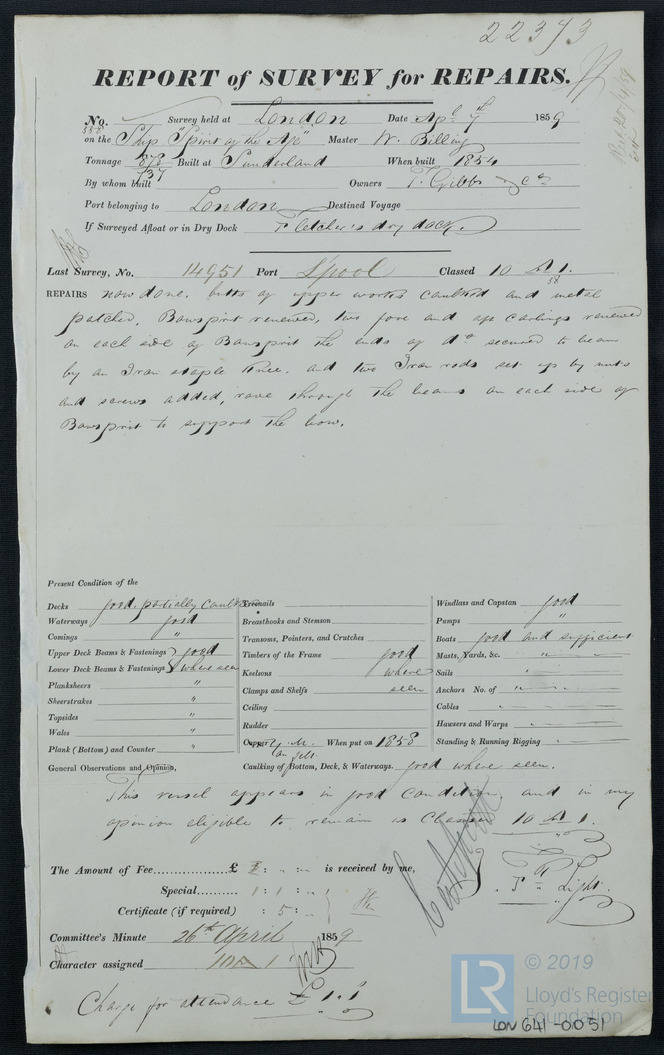 22373
REPORT of SURVEY for REPAIRS.
No. Survey held at London Date Apl 9th 1859
on the Ship "Spirit of the Age" Master W. Billing
Tonnage 878 Built at Sunderland When built 1854
737
By whom built Owners T. Gibbs & Co
Port belonging to London Destined Voyage
If Surveyed Afloat or in Dry Dock Fletcher's dry dock.
Last Survey, No. 14951 Port L'pool Classed 10 A 1.
58
REPAIRS now done. butts of upper works caulked and metal
patched, Bowsprit renewed, two fore and aft carlings renewed
on each side of Bowsprit the ends of do secured to beams
by an Iron staple knee. and two Iron rods set up by nuts
and screws added, rove through the beams on each side of
Bowsprit to support the bow.
Present Condition of the
Decks good. partially caulked
Waterways good
Comings "
Upper Deck Beams & Fastenings } good
Lower Deck Beams & Fastenings } where seen
Planksheers "
Sheerstrakes "
Topsides "
Wales "
Plank (Bottom) and Counter "
Treenails
Breasthooks and Stemson
Transoms, Pointers, and Crutches
Timbers of the Frame good
Keelsons where
Clamps and Shelfs seen
Ceiling
Rudder
Copper Y.M. When put on 1858
on felt
Caulking of Bottom, Deck, & Waterways. good where seen.
Windlass and Capstan good
Pumps "
Boats good and sufficient
Masts, Yards, &c. "
Sails "
Anchors No. of "
Cables "
Hawsers and Warps "
Standing & Running Rigging "
General Observations and Opinion,
This vessel appears in good condition, and in my
opinion eligible to remain as Classed 10 A 1.
The Amount of Fee £ : " : " is received by me,
Special 1 : 1 : "
Certificate (if required) : 5 :
T. Light.
Committee's Minute 26th April 1859
Character assigned 10 A 1
Charge for attendance £ 1.1
LR © 2019
Lloyd's Register
Foundation
LON 641-0051